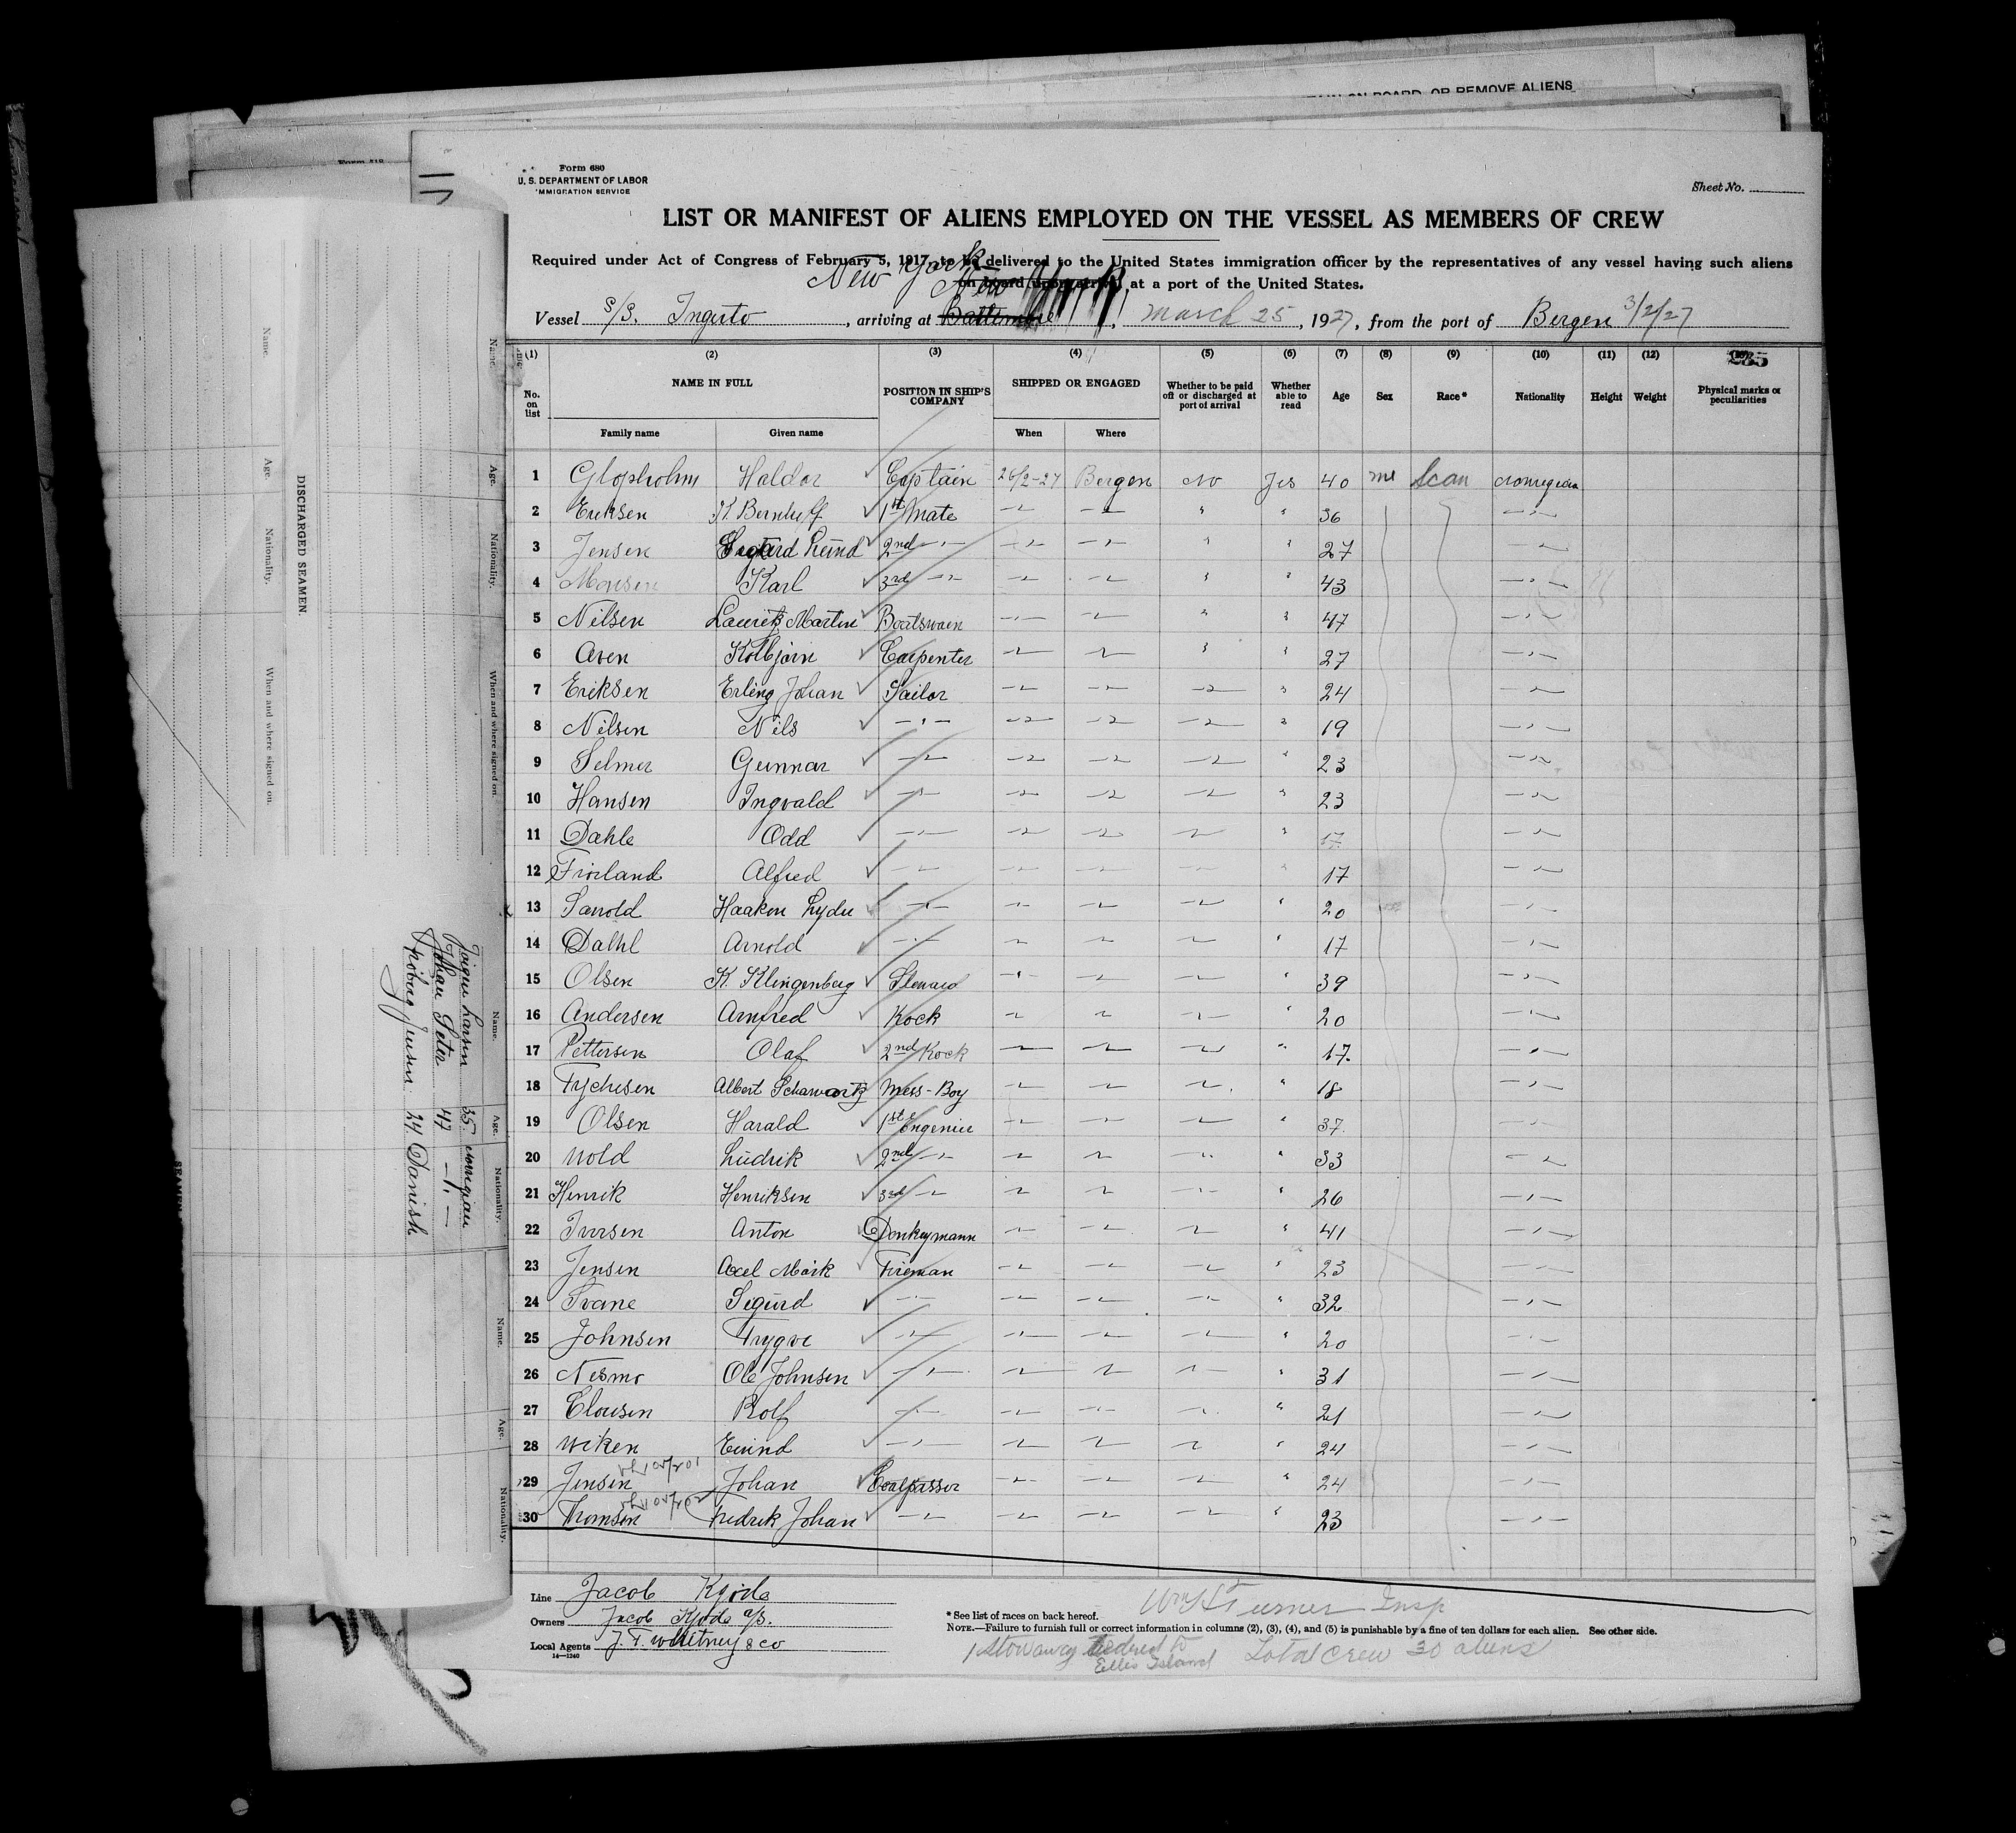 TAIN ON BOARD, OR REMOVE ALIENS
Form 680
U. S. DEPARTMENT OF LABOR
IMMIGRATION SERVICE
Sheet No.
LIST OR MANIFEST OF ALIENS EMPLOYED ON THE VESSEL AS MEMBERS OF CREW
Required under Act of Congress of February 5, 1917, to be delivered to the United States immigration officer by the representatives of any vessel having such aliens
on board upon arrival at a port of the United States.
New York
New
Vessel S/S. Ingerto, arriving at Baltimore, March 25, 1927, from the port of Bergen 3/2/27
(1) (2) (3) (4) (5) (6) (7) (8) (9) (10) (11) (12) 235
No. on list NAME IN FULL POSITION IN SHIP'S COMPANY SHIPPED OR ENGAGED Whether to be paid off or discharged at port of arrival Whether able to read Age Sex Race* Nationality Height Weight Physical marks or peculiarities
Family name Given name When Where
1 Haldor Captain 26/2-27 Bergen No Yes 40 Scan Norwegian
2 Eriksen K. Bernhoff 1st Mate 36
3 Jensen Sigurd 2nd 27
4 Monsen Karl 3rd 43
5 Nilsen Lauritz Martin Boatswaen 47
6 Aven Kolbjørn Carpenter 27
7 Eriksen Erling Johan Sailor 24
8 Nilsen Nils 19
9 Selmer Gunnar 23
10 Hansen Ingvald 23
11 Dahle Odd 17
12 Alfred 17
13 Haakon 20
14 Arnold 17
15 Olsen K. Klingenberg Steward 39
16 Andersen Arnfred Kock 20
17 Pettersen Olaf 2nd Kock 17
18 Tychesen Albert Mess-Boy 18
19 Olsen Harald 1st Ingeniør 37
20 Wold Ludvik 2nd 33
21 Henrik Henriksen 3rd 26
22 Iversen Anton Donkeymann 41
23 Jensen Axel Mørk Fireman 23
24 Svane Sigurd 32
25 Johnsen Trygve 20
26 Nesmo Ole Johnsen 31
27 Clousen Rolf 21
28 Wiken Eivind 24
29 Jensen Johan Coalpasser 24
30 Thomsen Fredrik Johan 23
Line Jacob Kjøde
Owners Jacob Kjøde A/S.
Local Agents J. F. Whitney & Co
14—1240
Wm H Turner Insp
* See list of races on back hereof.
NOTE.—Failure to furnish full or correct information in columns (2), (3), (4), and (5) is punishable by a fine of ten dollars for each alien. See other side.
1 Stowaway ordered to
Ellis Island
Total Crew 30 aliens
DISCHARGED SEAMEN.
Name. Age. Nationality. When and where signed on.
Name. Age. Nationality. When and where signed on.
Name. Age. Nationality.
Larsen 35 Norwegian
Johan Seter 47
Jensen 24 Danish
Name. Age. Nationality.